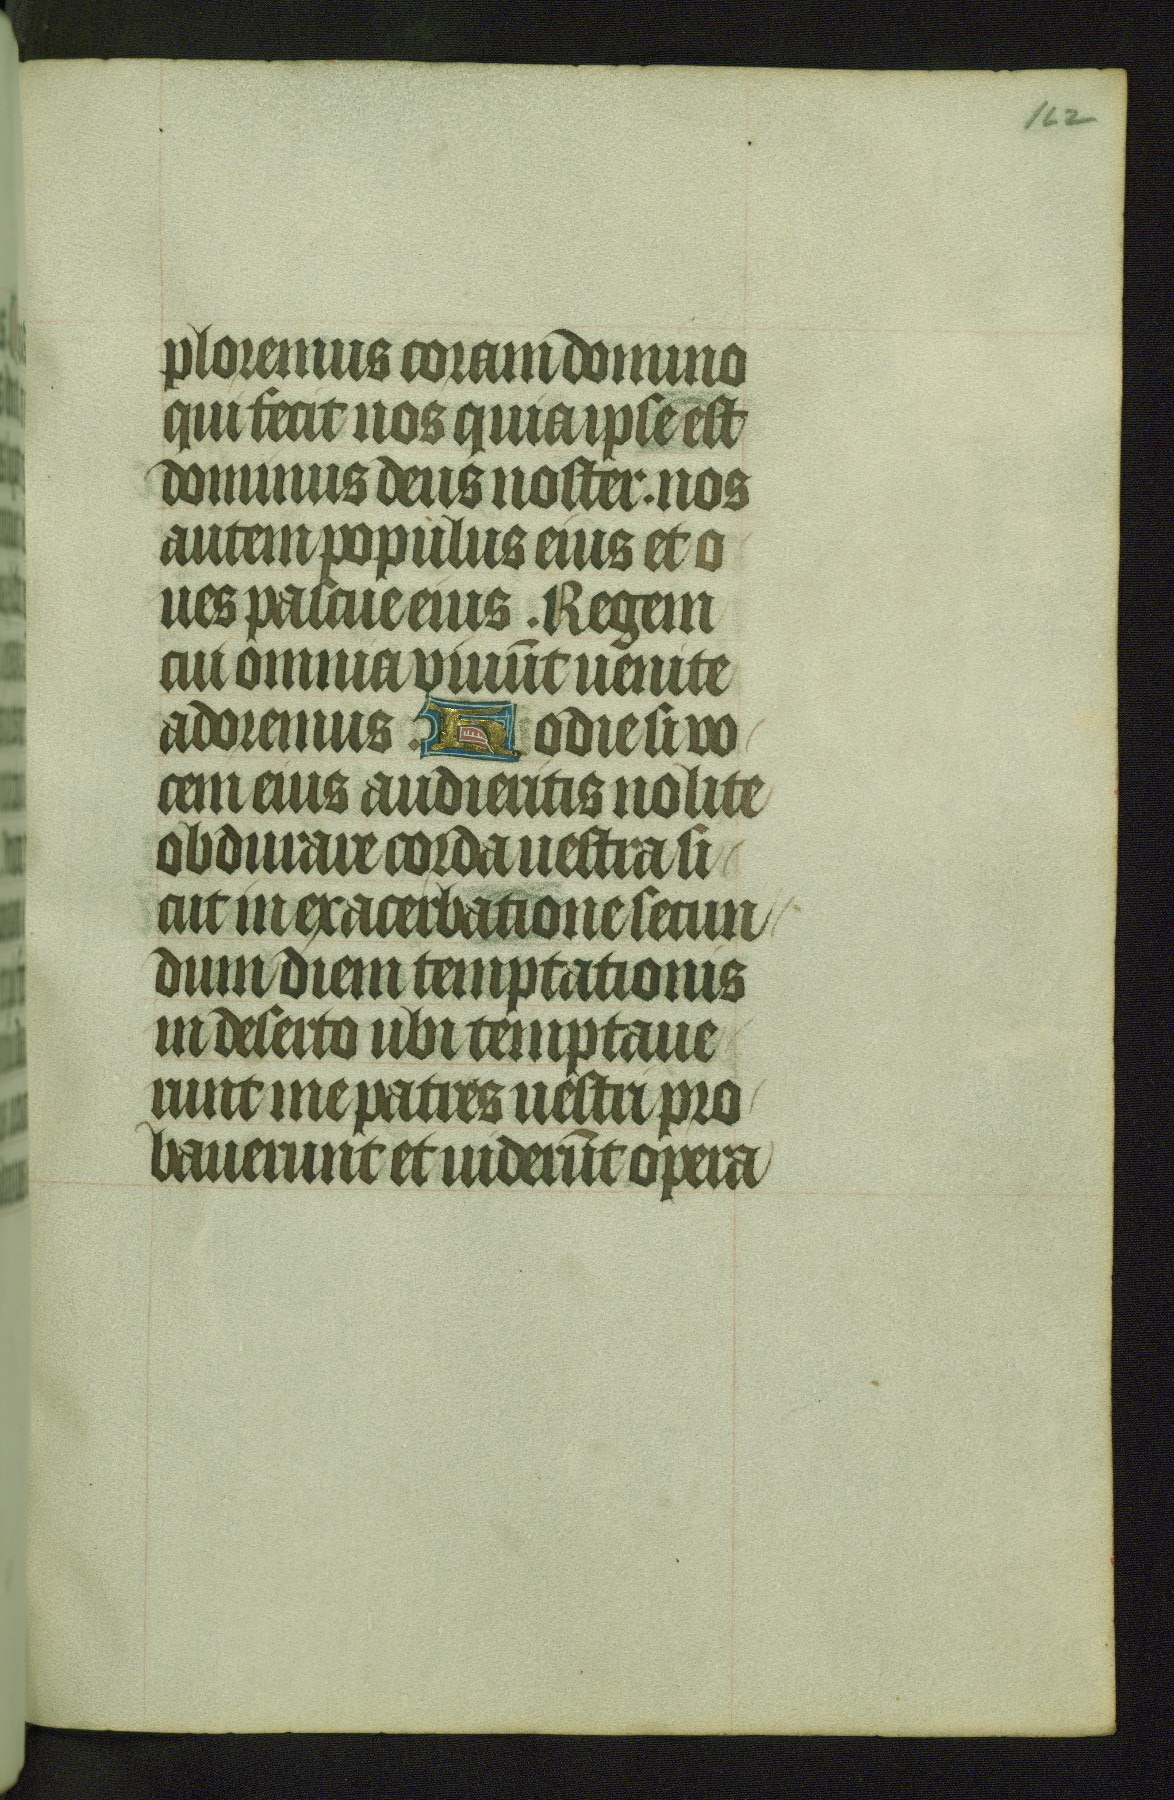 162
ploremus coram domino
qui fecit nos quia ipse est
dominus deus noster. nos
autem populus eius et o
ues pascue eius . Regem
cui omnia viuūt uenite
adoremus . Hodie si vo
cem eius audieritis nolite
obdurare corda uestra si
cut in exacerbatione secun
dum diem temptationis
in deserto ubi temptaue
runt me patres uestri pro
bauerunt et uiderūt opera